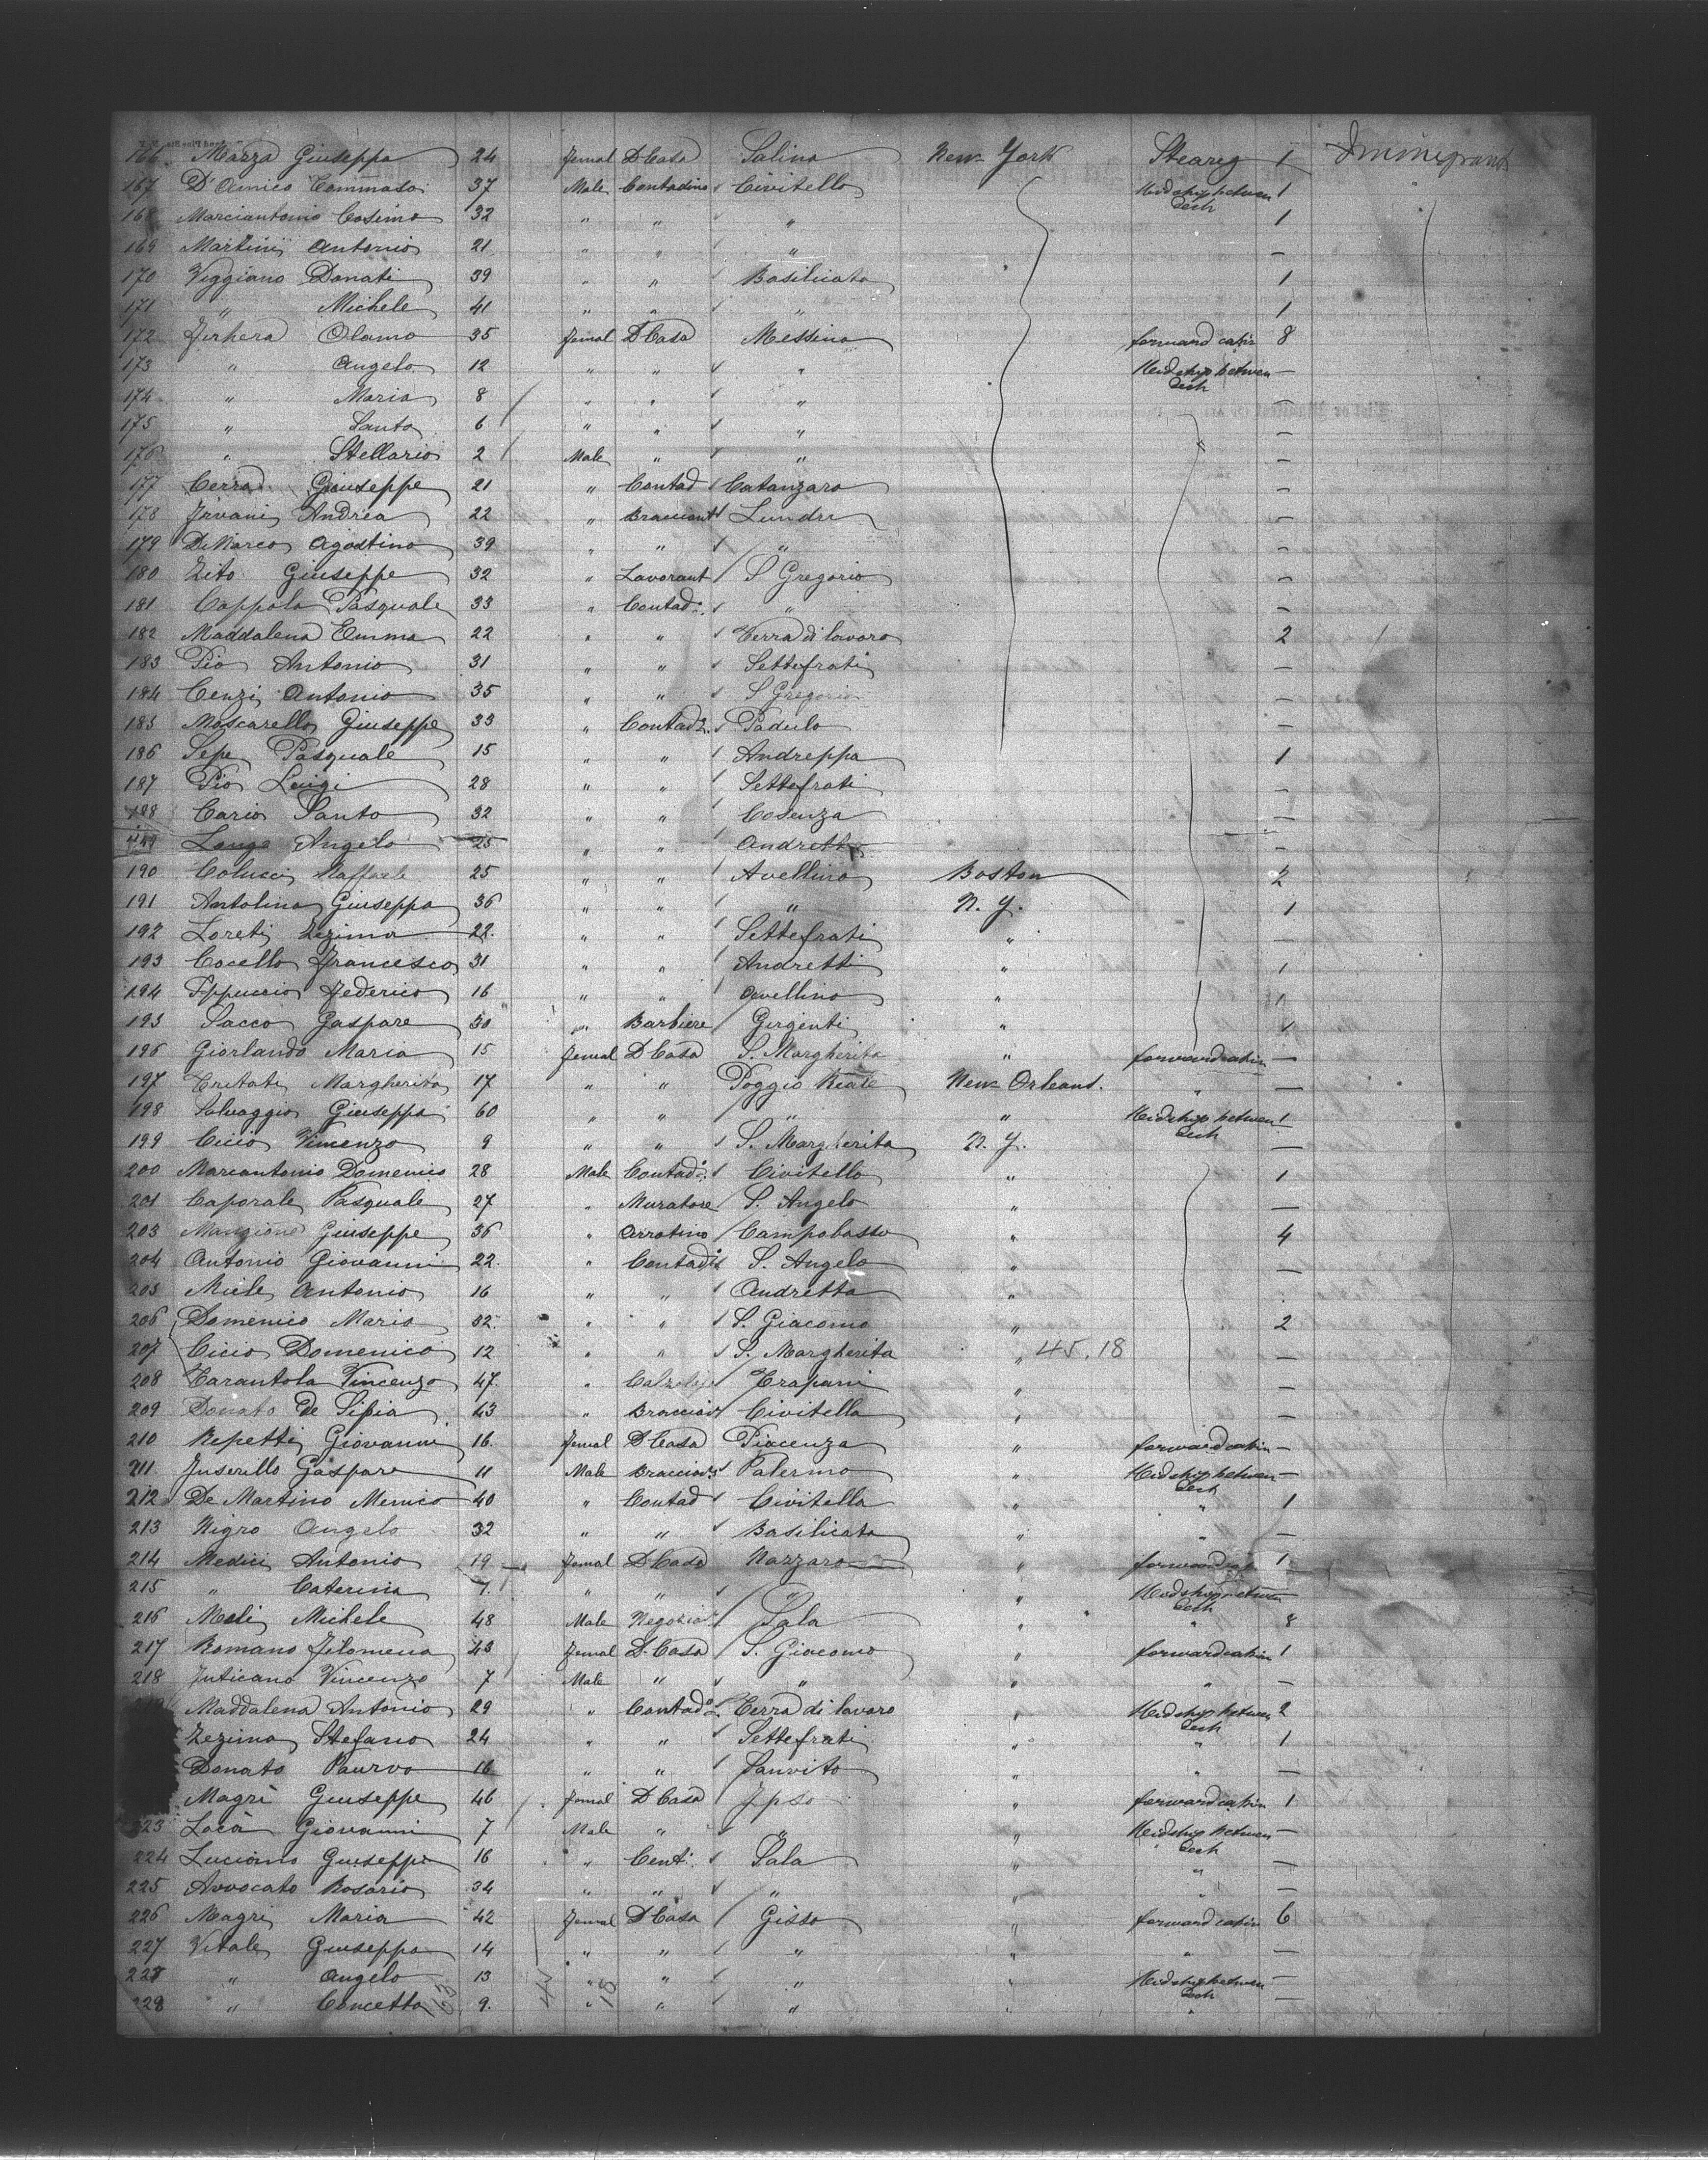 166 Mazza Giuseppa 24 Femal D Casa Salina New York Steareg 1 Immigrants
167 D'Amico Tommaso 37 Male Contadino Civitello Midship betwen 1
Deck
168 Marciantonio Cosimo 32 " " " 1
169 Martini Antonio 21 " " " —
170 Viggiano Donati 39 " " Basilicata 1
171 " Michele 41 " " " 1
172 Olamo 35 Femal D Casa Messina forward cabin 8
173 " Angelo 12 " " " Midship betwen —
Deck
174 " Maria 8 " " " —
175 " Santo 6 " " " —
176 " Stellario 2 Male " " —
177 Cerra Giuseppe 21 " Contad Catanzaro —
178 Andrea 22 " Bracciant —
179 DeMarco Agostino 39 " " " —
180 Zito Giuseppe 32 " Lavorant S Gregorio —
181 Coppola Pasquale 33 " Contad. " —
182 Maddalena Emma 22 " " Terra di lavoro 2
183 Pio Antonio 31 " " Settefrati —
184 Cenzi Antonio 35 " " S Gregorio —
185 Moscarello Giuseppe 33 " Contad. Padulo —
186 Sepe Pasquale 15 " " Andreppa 1
187 Pio Luigi 28 " " Settefrati —
188 Cario Santo 32 " " Cosenza —
189 Longo Angelo 25 " " Andretta —
190 Colucci Raffaele 25 " " Avellino Boston 2
191 Antolino Giuseppe 36 " " " N. Y. 1
192 Loreti Zezima 22 " " Settefrati " —
193 Cocello Francesco 31 " " Andretti " 1
194 Federico 16 " " Avellino " 1
195 Sacco Gaspare 30 " Barbiere Girgenti " 1
196 Giorlando Maria 15 Femal D Casa S. Margherita " forward cabin —
197 Tritati Margherita 17 " " Poggio Reale New Orleans. " —
198 Salvaggio Giuseppa 60 " " " " Midship betwen 1
Deck
199 Cicio Vincenzo 9 " " S. Margherita N. Y. —
200 Marcantonio Domenico 28 Male Contad. Civitello " 1
201 Caporale Pasquale 27 " Muratore S. Angelo " —
203 Mangione Giuseppe 36 " Arrotino Campobasso " 4
204 Antonio Giovanni 22 " Contadi S. Angelo " —
205 Miele Antonio 16 " " Andretta "
206 Domenico Mario 32 " " S. Giacomo " 2
207 Cicio Domenico 12 " " S. Margherita " 45.18 —
208 Tarantola Vincenzo 47 " Trapani " —
209 Donato De Sipia 43 " Civitella " —
210 Repetti Giovanni 16 Femal D Casa Piacenza " forward cabin —
211 Inserillo Gaspare 11 Male Palermo " Midship betwen —
Deck
212 De Martino Menico 40 " Contad Civitella " " 1
213 Nigro Angelo 32 " " Basilicata " " —
214 Medici Antonio 19 Femal D Casa Nazzaro " 1
215 " Caterina 7 " " " " Midship betwen —
Deck
216 Meli Michele 48 Male Negozia Sala " " 8
217 Romano Filomena 43 Femal D. Casa S. Giacomo " forward cabin 1
218 Juticano Vincenzo 7 Male " " " " —
Maddalena Antonio 29 " Contad. Terra di lavoro " Midship betwen 2
Deck
Zezima Stefano 24 " " Settefrati " " 1
Donato Paurvo 16 " " Sanvito " " —
Magri Giuseppe 46 Femal D Casa " forward cabin 1
223 Loca Giovanni 7 Male " " " Midship betwen —
Deck
224 Luciano Giuseppe 16 " Cont. Sala " " —
225 Avvocato Rosario 34 " " " " " —
226 Magri Maria 42 Femal D Casa Gisso " forward cabin 6
227 Vitale Giuseppa 14 " " " " " —
228 " Angelo 13 " " " " Midship betwen —
Deck
229 " Concetta 63 9. 44 " 18 " " " " —